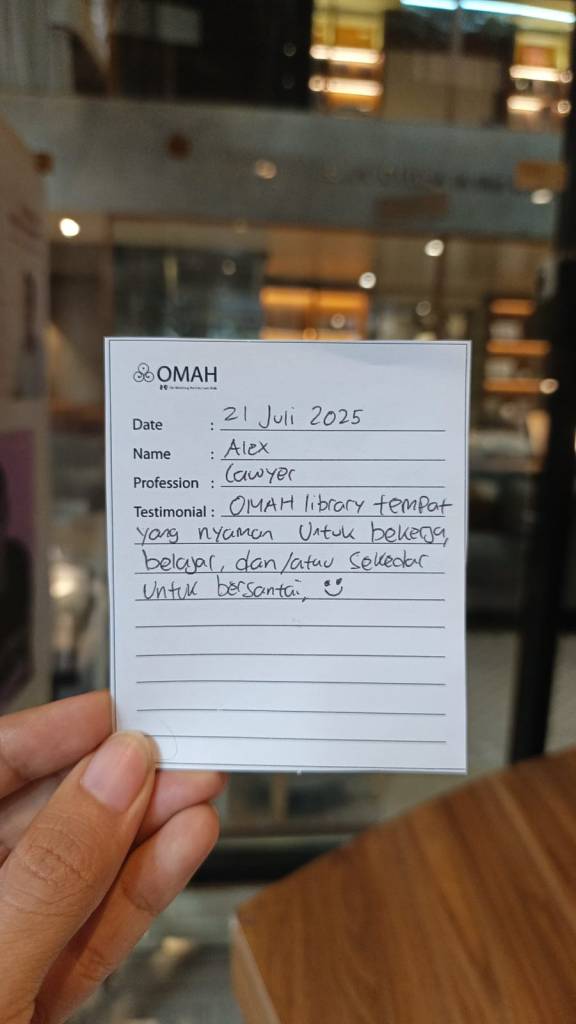 OMAH
Date : 21 Juli 2025
Name : Alex
Profession : Lawyer
Testimonial : OMAH library tempat
yang nyaman untuk bekerja,
belajar, dan/atau sekedar
untuk bersantai,